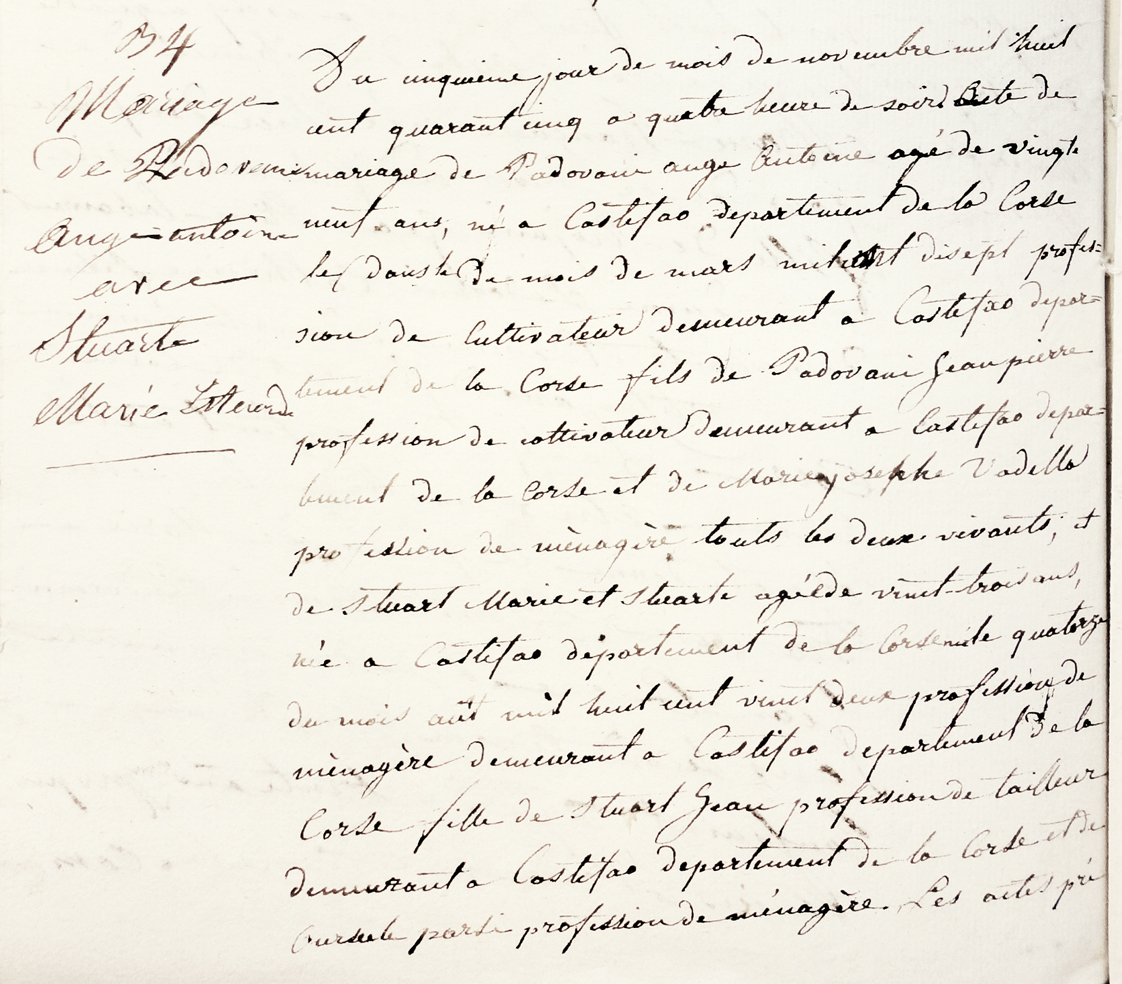 34
Mariage
de Padovani
Ange antoine
avec
Stuarte
Marie
Du cinquieme jour de mois de novembre mil huit
cent quarant cinq a quatre heure de soir Acte de
mariage de Padovani ange Antoine agé de vingt
neuf ans, né a Castifao departement de la Corse
le de mois de mars mil disept profes=
sion de Cultivateur demeurant a Castifao depar=
tement de la Corse fils de Padovani Jean pierre
profession de cultivateur demeurant a Castifao depar=
tement de la Corse et de Marie josephe Vadella
profession de ménagère touts les deux vivants, et
de Stuart Marie et Stuarte agée de vint-trois ans,
née a Castifao département de la Corse le quatorze
du mois aût mil huit cent vint deux profession de
ménagère demeurant a Castifao departement de la
Corse fille de Stuart Jean profession de tailleur
demeurant a Castifao departement de la Corse et de
parsi profession de ménagère. Les actes pré